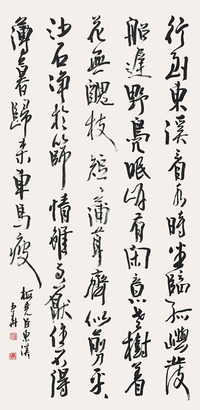 行到東溪看水時坐臨孤嶼發
船遲野鳧眠岸有閑意老樹着
花無醜枝短短蒲茸齊似剪平平
沙石淨於篩情雖不厭住不得
薄暮歸來車馬疲
梅堯臣東溪